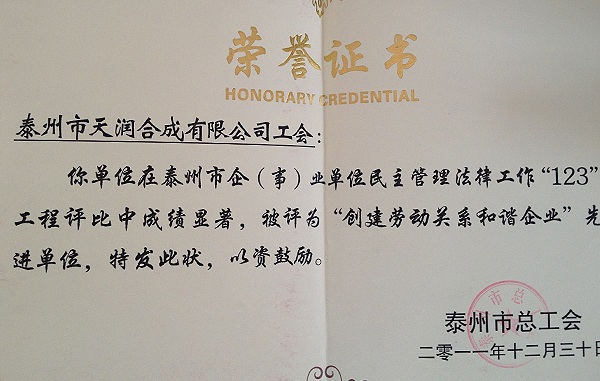 荣誉证书
HONORARY CREDENTIAL
泰州市天润合成有限公司工会：
你单位在泰州市企（事）业单位民主管理法律工作“123”
工程评比中成绩显著，被评为“创建劳动关系和谐企业”先
进单位，特发此状，以资鼓励。
泰州市总工会
二零一一年十二月三十日